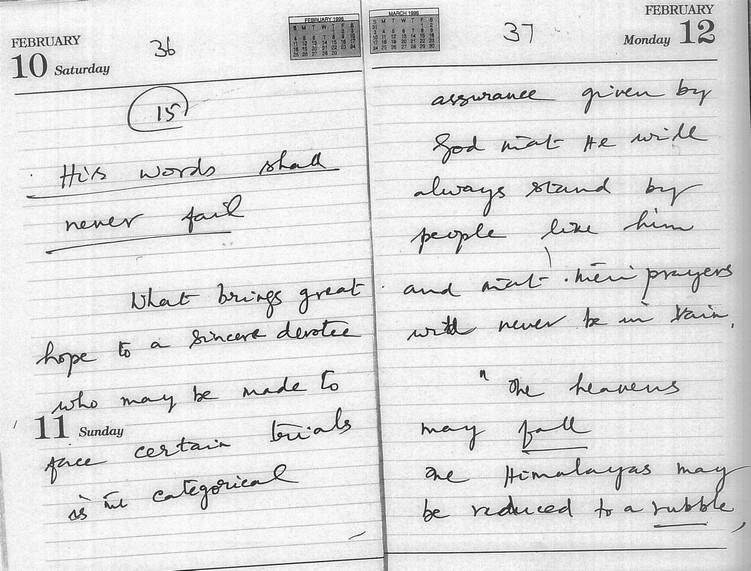 FEBRUARY
10 Saturday
36
FEBRUARY 1996
15
His words shall
never fail
What brings great
hope to a sincere devotee
who may be made to
11 Sunday
face certain trials
is the categorical
MARCH 1996
37
FEBRUARY
Monday 12
assurance given by
God that He will
always stand by
people like him
and that their prayers
will never be in vain.
" The heavens
may fall
The Himalayas may
be reduced to a rubble,